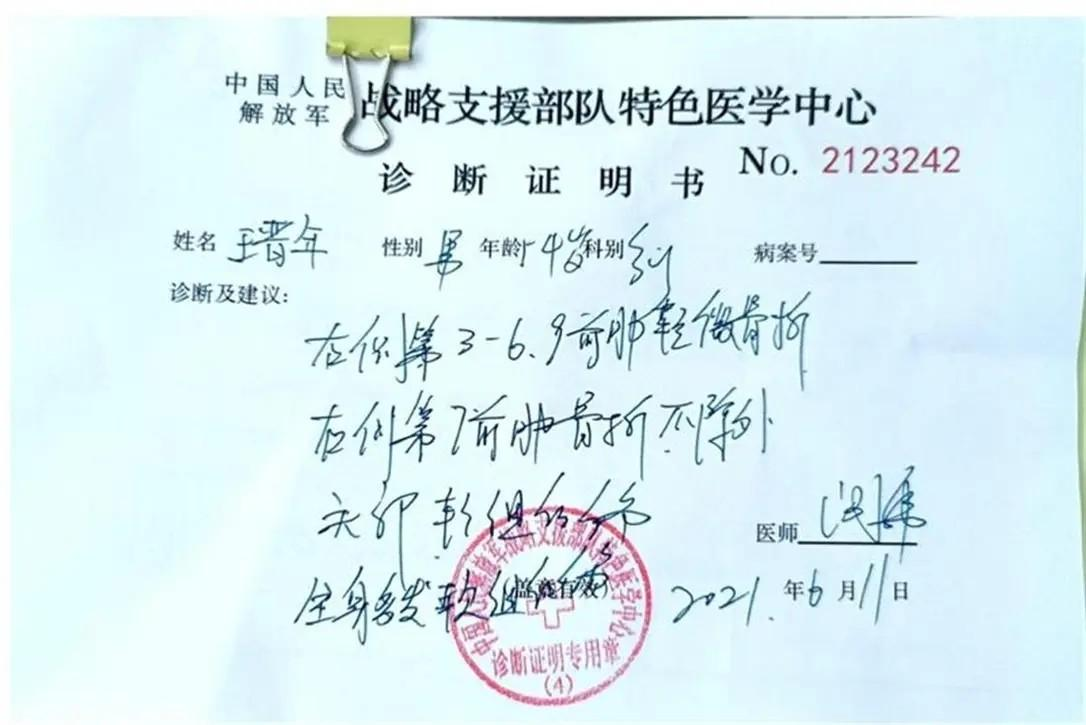 中国人民解放军 战略支援部队特色医学中心
诊断证明书 No. 2123242
姓名 王晋年 性别 男 年龄 54岁 科别 病案号
诊断及建议:
右侧第3-6、9前肋轻微骨折
右侧第7前肋骨折不除外
头部软组织伤
医师
全身多发软组织伤
(盖章有效)
2021.年6月11日
中国人民解放军战略支援部队特色医学中心
诊断证明专用章
(4)